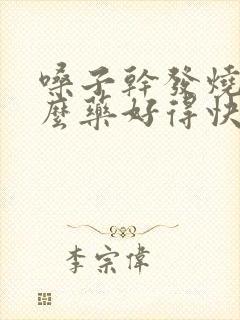 嗓子幹發燒
麼藥好得快
李宗偉